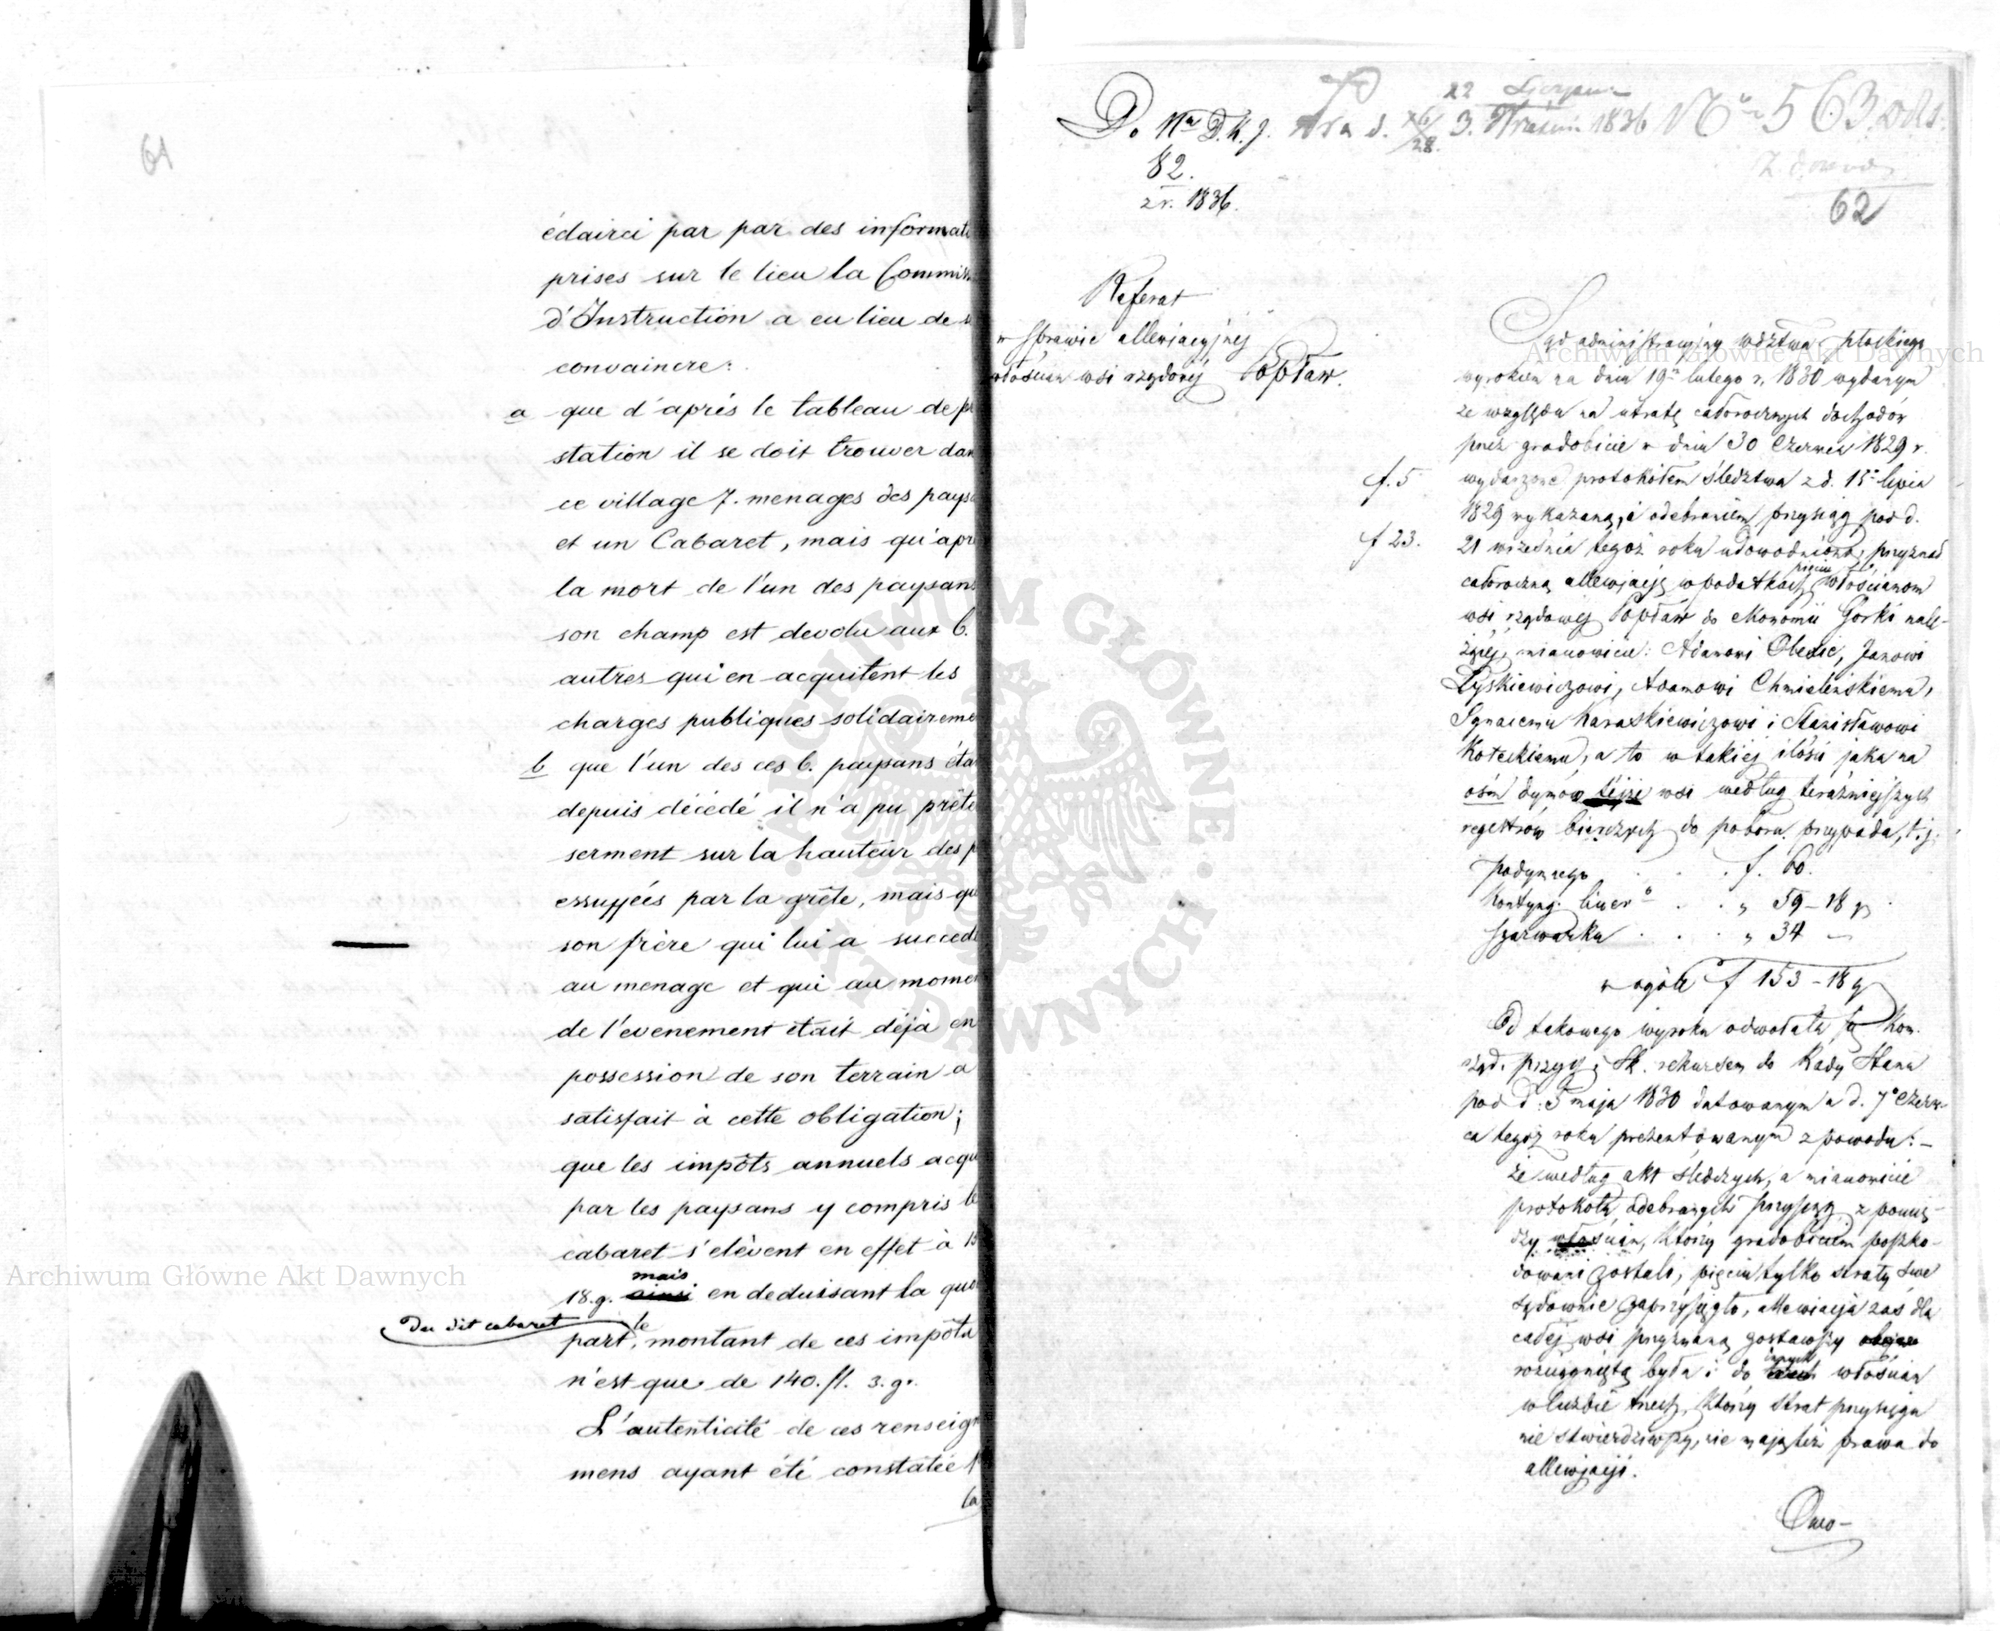 61
éclairci par par des informati
prises sur le lieu la Commiss
d'Instruction a eu lieu de s
convaincre:
a que d'aprés le tableau de pr
station il se doit trouver dan
ce village 7. menages des paysa
et un Cabaret, mais qu'apr
la mort de l'un des paysans
son champ est devolu aux 6.
autres qui en acquitent les
charges publiques solidaireme
b que l'un des ces 6. paysans éta
depuis décédé il n'a pu prête
serment sur la hauteur des p
essuyées par la grêle, mais qu
son frère qui lui a succed
au menage et qui au momen
de l'evenement etait déjà en
possession de son terrain a
satisfait à cette obligation;
que les impôts annuels acqu
par les paysans y compris le
cabaret s'elèvent en effet à 15
18.g. ainsi mais en deduisant la quo
part du dit cabaret, le montant de ces impôts
n'est que de 140.fl. 3.g.
L'autenticité de ces renseign
mens ayant été constatée
la
Do Nru D.K.J. 1836 No 563
82.
z r. 1836.
62
Referat
w sprawie allewiacyjnej
włościan wsi rządowej Popław.
Sąd administracyjny wdztwa Płockiego
wyrokiem na dniu 19 lutego r. 1830 wydanym
ze względu na utratę całorocznych dochodów
przez gradobicie w dniu 30 Czerwca 1829 r.
f. 5. protokółem śledztwa z d. 15 lipca
1829 wykazaną, a odebraniem przysiąg pod d.
f 23. 21 września tegoż roku udowodnioną, przyznał
całoroczną allewjacją w podatkach pięciu włościanom
wsi rządowej Popław do ekonomii Gorki nale-
żącej, mianowicie: Adamowi Obezie, Janowi
Łyskiewiczowi, Adamowi Chmielińskiemu,
Ignacemu Karaskiewiczowi i Stanisławowi
Koteckiemu, a to w takiej ilości jaka na
ośm dymów tejże wsi według teraźniejszych
regestrów bierczych do poboru przypada, t.j.
podymnego . . . f. 60.
Kontyng. liwer . . . „ 59 - 18 g
Szarwarku . . . „ 34 -
w ogóle f 153 - 18 g
Od takowego wyroku odwołała się Kom.
rząd. przych. i Sk. rekursem do Rady Stanu
pod d. 5 maja 1830 datowanym a d. 7 Czerw-
ca tegoż roku prezentowanym z powodu: -
że według akt śledczych, a mianowicie
protokołu odebranych przysiąg z pomię-
dzy włościan, którzy gradobiciem poszko-
dowani zostali, pięciu tylko straty swe
sądownie zaprzysięgło, allewiacja zaś dla
całej wsi przyznaną zostawszy
rozciągniętą była i do innych włościan
w liczbie trzech, którzy strat przysięgą
nie stwierdziwszy, nie mają też prawa do
allewjacji.
Owo-
Archiwum Główne Akt Dawnych
Archiwum Główne Akt Dawnych
ARCHIWUM GŁÓWNE AKT DAWNYCH